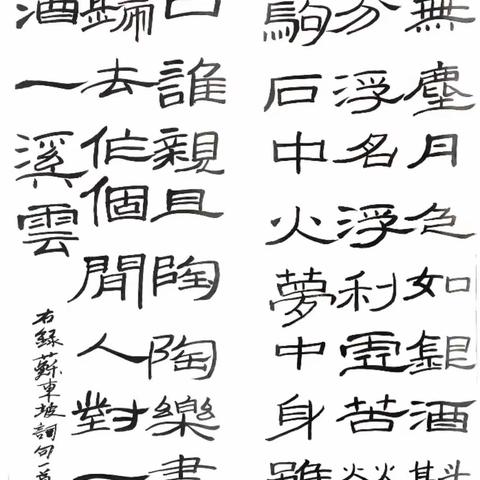 無塵月色如銀酒斟
分浮名浮利虛苦
駒石中火夢中身雖
口誰親且陶陶樂盡
歸去作個閒人對一
酒一溪雲
右錄蘇東坡詞句一首